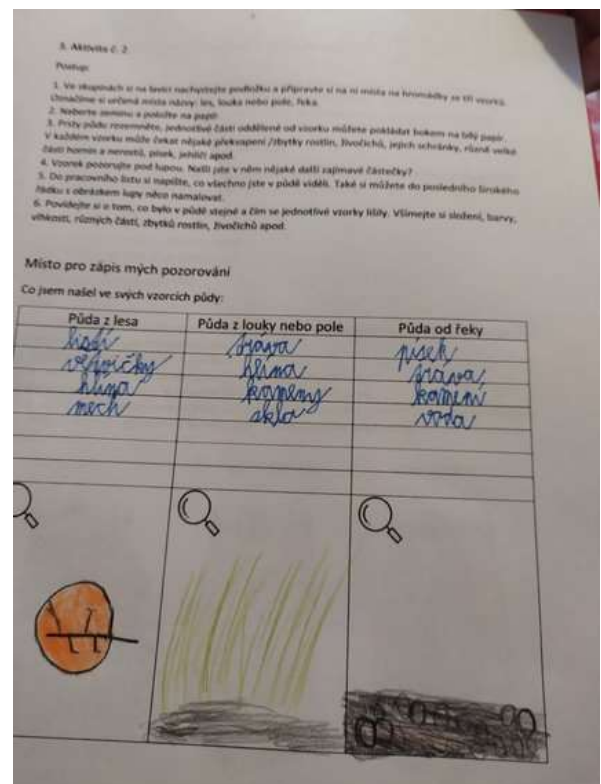 3. Aktivita č. 2.
Postup:
1. Ve skupinách si na lavici nachystejte podložku a připravte si na ní místa na hromádky se tří vzorků.
Označíme si určená místa názvy: les, louka nebo pole, řeka.
2. Naberte zeminu a položte na papír.
3. Prsty půdu rozemněte, jednotlivé části oddělené od vzorku můžete pokládat bokem na bílý papír.
V každém vzorku může čekat nějaké překvapení /zbytky rostlin, živočichů, jejich schránky, různě velké
části hornin a nerostů, písek, jehličí apod.
4. Vzorek pozorujte pod lupou. Našli jste v něm nějaké další zajímavé částečky?
5. Do pracovního listu si napište, co všechno jste v půdě viděli. Také si můžete do posledního širokého
řádku s obrázkem lupy něco namalovat.
6. Povídejte si o tom, co bylo v půdě stejné a čím se jednotlivé vzorky lišily. Všímejte si složení, barvy,
vlhkosti, různých částí, zbytků rostlin, živočichů apod.
Místo pro zápis mých pozorování
Co jsem našel ve svých vzorcích půdy:
Půda z lesa Půda z louky nebo pole Půda od řeky
listí tráva písek
větvičky hlína tráva
hlína kameny kamení
mech skla voda